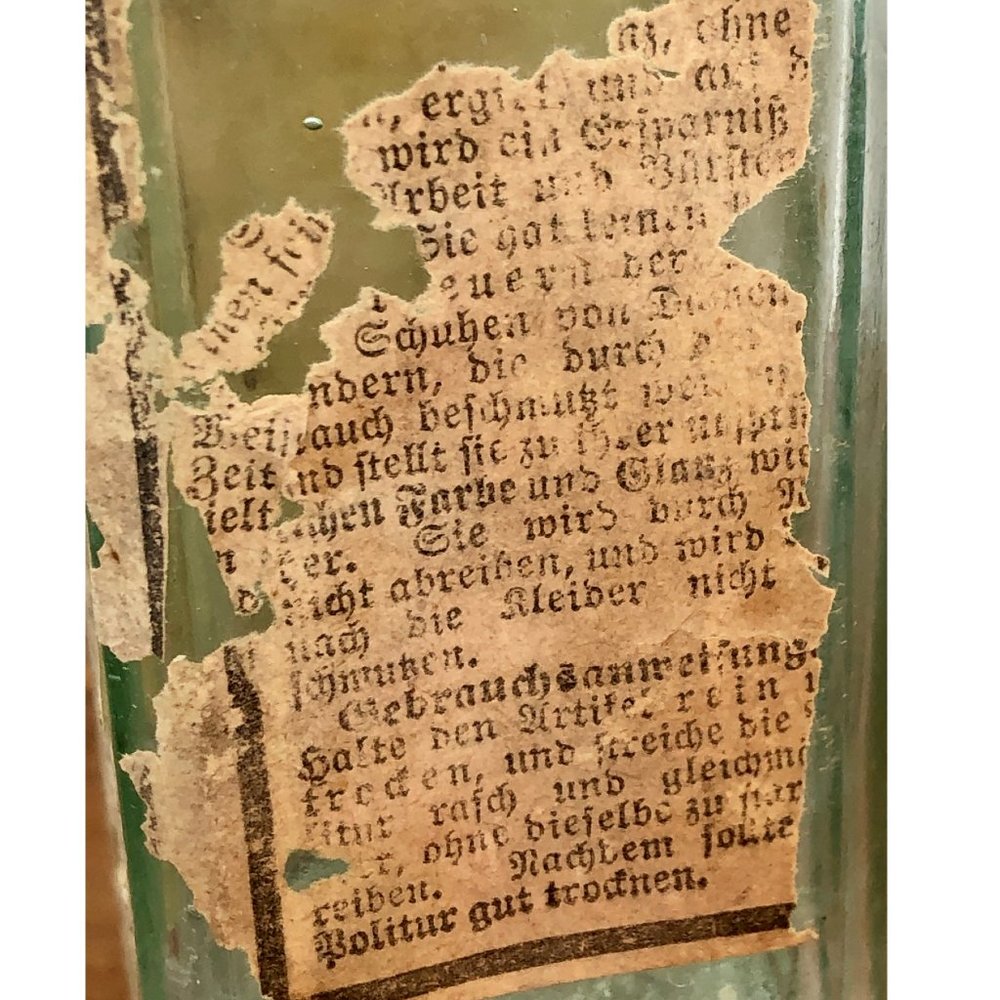 nz, ohne
und auf d
wird ein Ersparniß
Arbeit und Bürsten
Sie hat keinen
euern der
inen für
Schuhen von Damen
ndern, die durch
Weiß auch beschmutzt
Zeit nd stellt sie zu ihrer ursprü
ielt lichen Farbe und Glanz wie
n der. Sie wird durch
d nicht abreiben, und wird
nach die Kleider nicht
schmutzen.
Gebrauchsanweisung.
Halte den Artikel rein
trocken, und streiche die
litur rasch und gleichmä
er, ohne dieselbe zu star
reiben. Nachdem sollte
Politur gut trocknen.